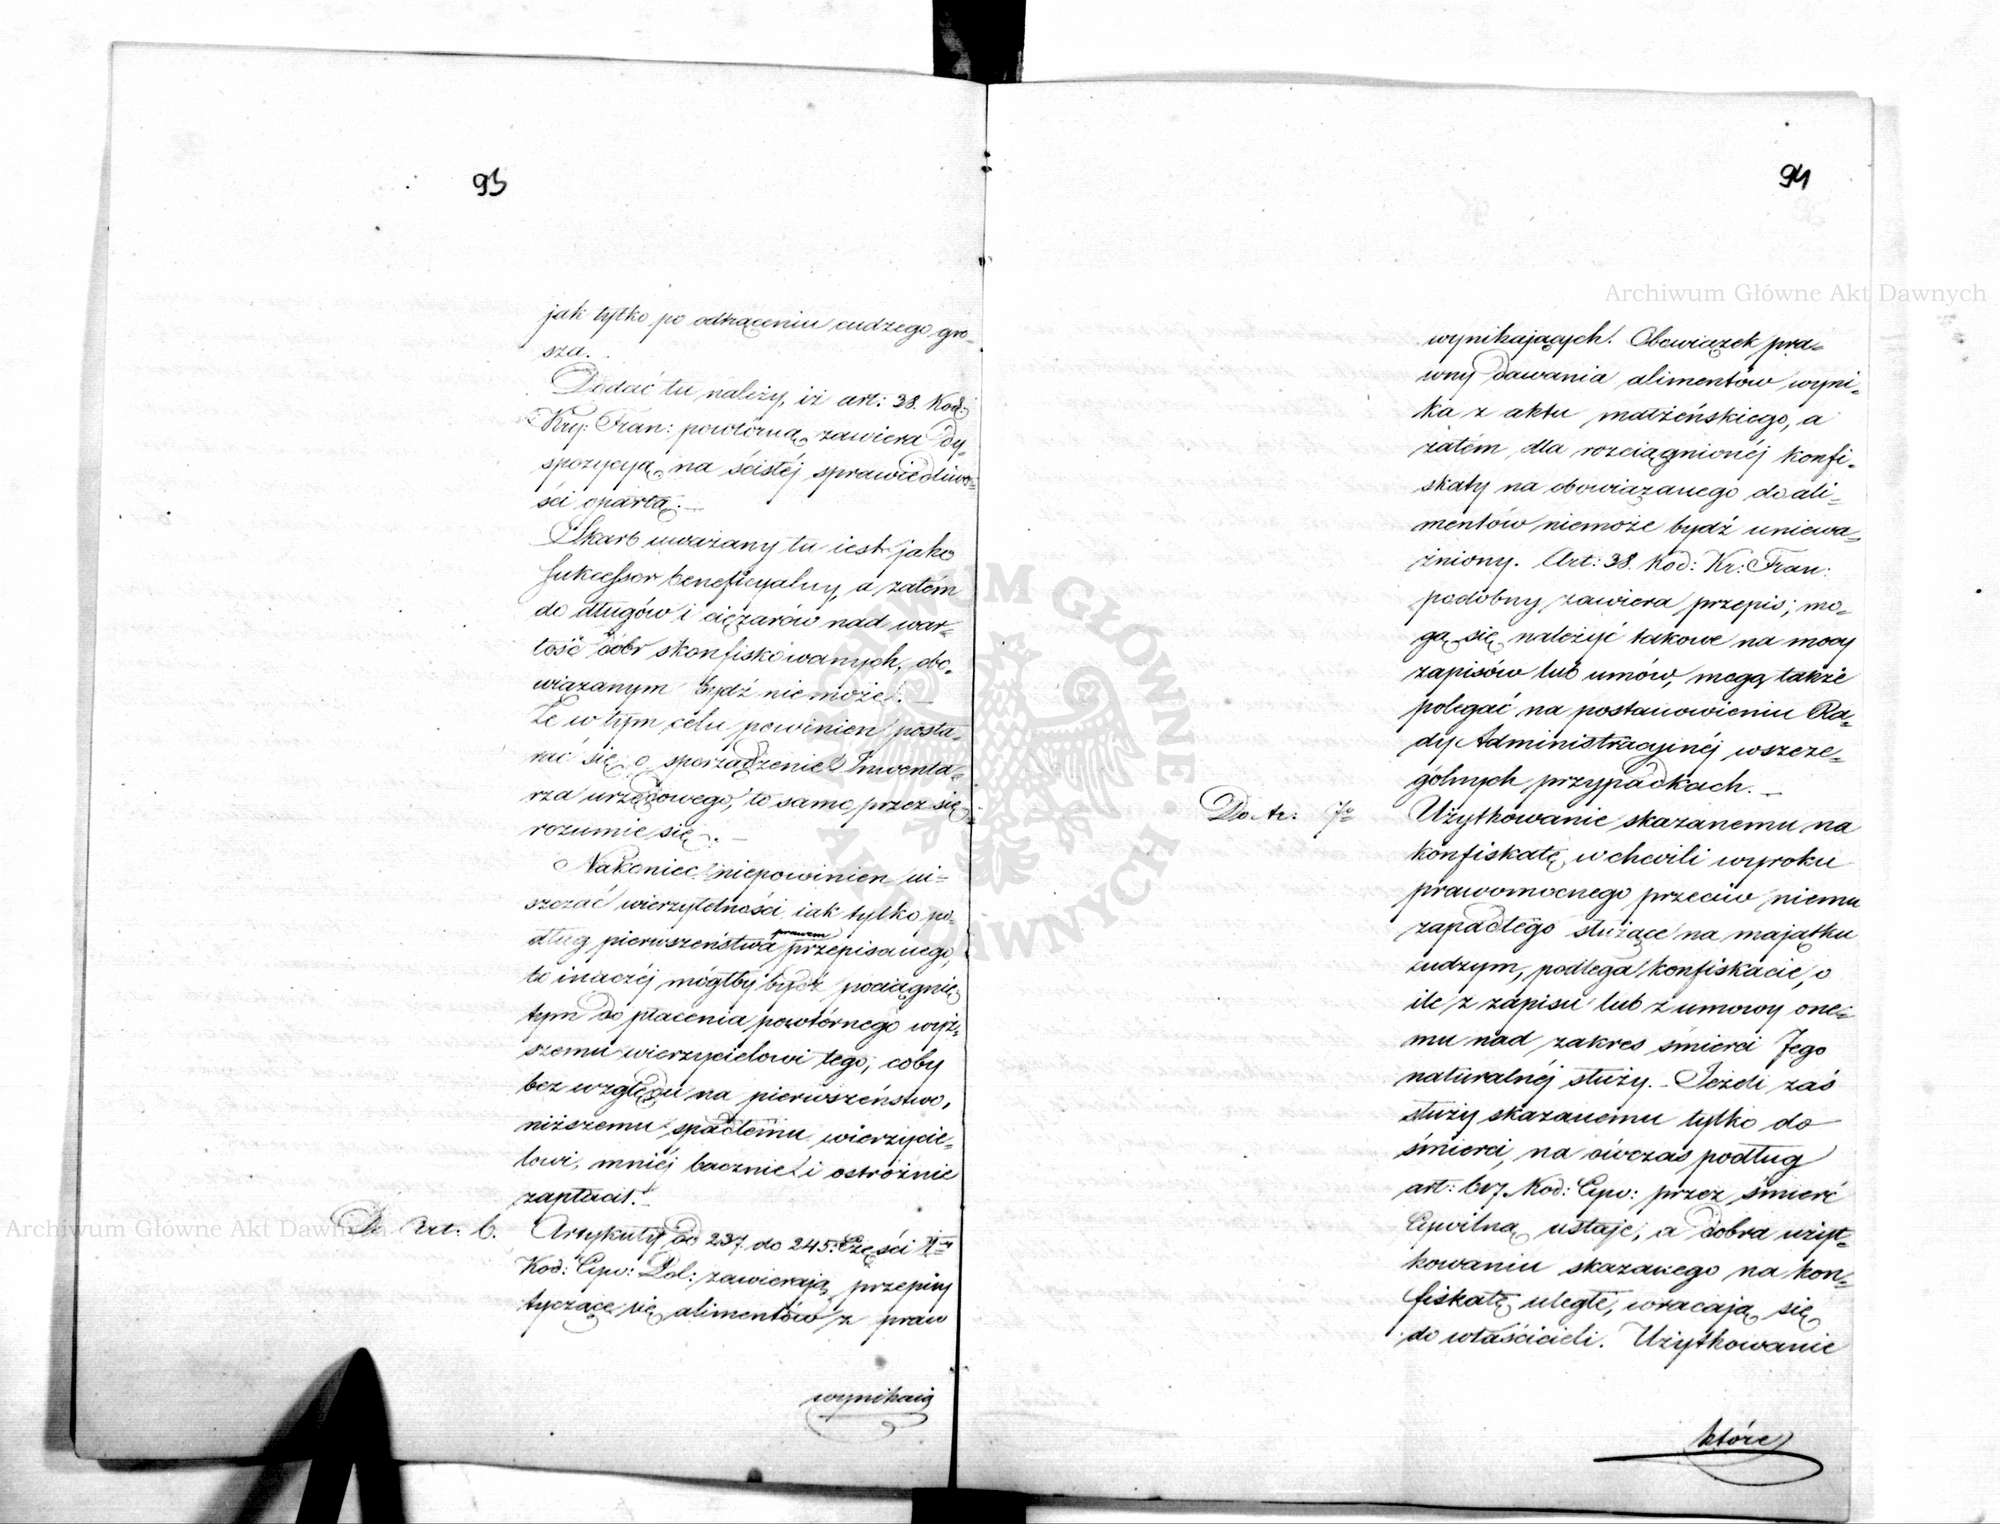 93
jak tylko po odtrąceniu cudzego gro-
sza.
Dodać tu należy, iż art: 38. Kod:
Kry: Fran: powtórną zawiera dy-
spozycyą na ścisłéj sprawiedliwo-
ści opartą.
Skarb uważany tu iest jako
sukcessor beneficyalny, a zatém
do długów i ciężarów nad war-
tość dóbr skonfiskowanych, obo-
wiązanym bydź niemoże.
Że w tym celu powinien posta-
rać się o sporządzenie Inwenta-
rza urzędowego, to samo przez się
rozumie się.
Nakoniec niepowinien ui-
szczać wierzytelności iak tylko po-
dług pierwszeństwa prawem przepisanego,
bo inaczéj mógłby bydź pociągnię-
tym do płacenia powtórnego wyż-
szemu wierzycielowi tego, coby
bez względu na pierwszeństwo,
niższemu spadłemu wierzycie-
lowi, mniéj bacznie i ostróżnie
zapłacił.
Do Art: 6. Artykuły od 237 do 245. Części I
Kod: Cyw: Pol: zawierają przepisy
tyczące się alimentów z praw
wynikaią
94
wynikających. Obowiązek pra-
wny dawania alimentów wyni-
ka z aktu małżeńskiego, a
zatém dla rozciągnionéj konfi-
skaty na obowiązanego do ali-
mentów niemoże bydź uniewa-
żniony. Art: 38. Kod: Kr: Fran:
podobny zawiera przepis; mo-
gą się należyć takowe na mocy
zapisów lub umów, mogą także
polegać na postanowieniu Ra-
dy Administracyjnéj w szcze-
gólnych przypadkach.
Do Ar: 7 Użytkowanie skazanemu na
konfiskatę w chwili wyroku
prawomocnego przeciw niemu
zapadłégo służące na majątku
cudzym, podlega konfiskacie, o
ile z zapisu lub z umowy one-
mu nad zakres śmierci Jego
naturalnéj służy. Jeżeli zaś
służy skazanemu tylko do
śmierci, na ówczas podług
art: 617. Kod: Cyw: przez śmierć
Cywilną ustaje, a dobra użyt-
kowaniu skazanego na kon-
fiskatę uległe, wracają się
do właścicieli. Użytkowanie
które
Archiwum Główne Akt Dawnych
Archiwum Główne Akt Dawnych
ARCHIWUM GŁÓWNE AKT DAWNYCH